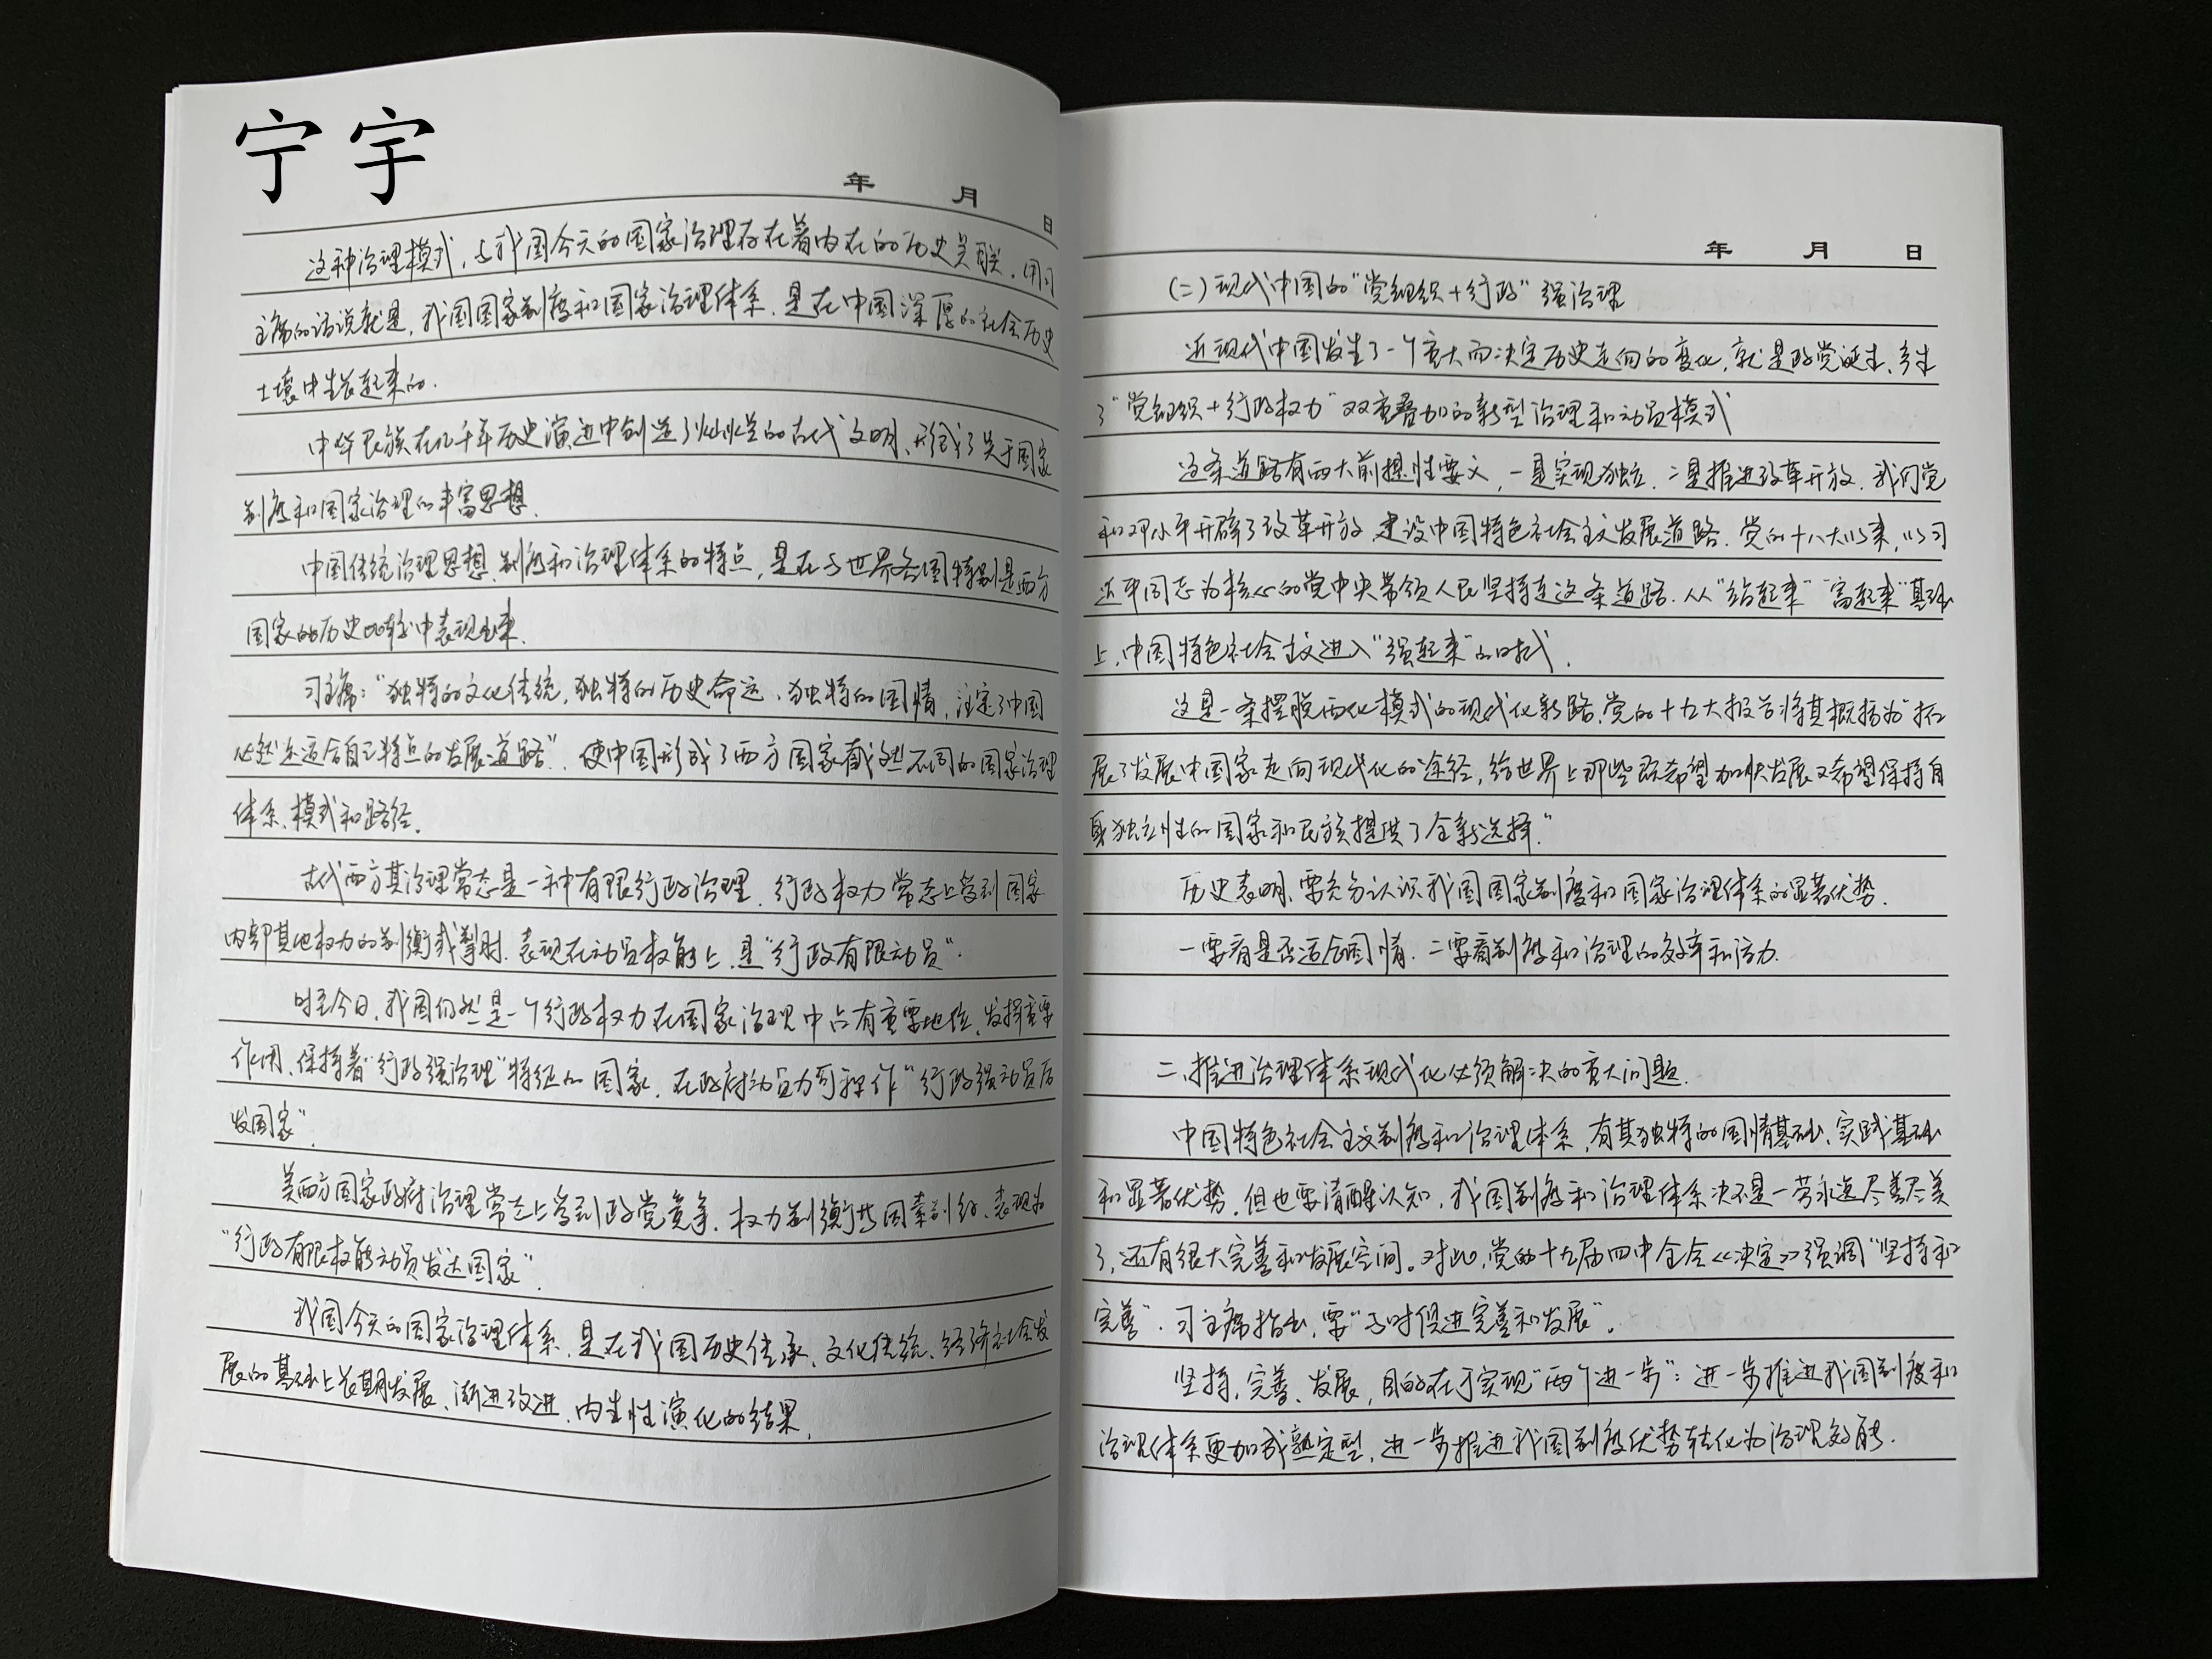 宁宇
年 月 日
这种治理模式，与我国今天的国家治理存在着内在的历史关联，用习
主席的话说就是，我国国家制度和国家治理体系，是在中国深厚的社会历史
土壤中生长起来的.
中华民族在几千年历史演进中创造了灿烂的古代文明、形成了关于国家
制度和国家治理的丰富思想.
中国传统治理思想、制度和治理体系的特点，是在与世界各国特别是西方
国家的历史比较中表现出来.
习主席："独特的文化传统，独特的历史命运，独特的国情，注定了中国
必然走适合自己特点的发展道路"，使中国形成了西方国家截然不同的国家治理
体系、模式和路径.
古代西方其治理常态是一种有限行政治理，行政权力常态上受到国家
内部其他权力的制衡或掣肘，表现在动员权能上，是"行政有限动员".
时至今日，我国仍然是一个行政权力在国家治理中占有重要地位、发挥重要
作用、保持着"行政强治理"特征的国家，在政府动员力可称作"行政强动员历
发国家".
美西方国家政府治理常态上受到政党竞争、权力制衡等因素制约、表现为
"行政有限权能动员发达国家".
我国今天的国家治理体系，是在我国历史传承、文化传统、经济社会发
展的基础上长期发展、渐进改进、内生性演化的结果.
年 月 日
(二)现代中国的"党组织+行政"强治理
近现代中国发生了一个重大而决定历史走向的变化，就是政党诞生，产生
了"党组织+行政权力"双重叠加的新型治理和动员模式
这条道路有两大前提性要义，一是实现独立，二是推进改革开放. 我们党
和邓小平开辟了改革开放、建设中国特色社会主义发展道路. 党的十八大以来，以习
近平同志为核心的党中央带领人民坚持走这条道路. 从"站起来""富起来"基础
上，中国特色社会主义进入"强起来"的时代.
这是一条摆脱西化模式的现代化新路，党的十九大报告将其概括为"拓
展了发展中国家走向现代化的途径，给世界上那些既希望加快发展又希望保持自
身独立性的国家和民族提供了全新选择."
历史表明，要充分认识我国国家制度和国家治理体系的显著优势.
一要看是否适合国情. 二要看制度和治理的效率和活力.
二、推进治理体系现代化必须解决的重大问题.
中国特色社会主义制度和治理体系，有其独特的国情基础、实践基础
和显著优势，但也要清醒认知，我国制度和治理体系决不是一劳永逸尽善尽美
了，还有很大完善和发展空间。对此，党的十九届四中全会《决定》强调"坚持和
完善". 习主席指出，要"与时俱进完善和发展"。
坚持、完善、发展，目的在于实现"两个进一步"：进一步推进我国制度和
治理体系更加成熟定型，进一步推进我国制度优势转化为治理效能.